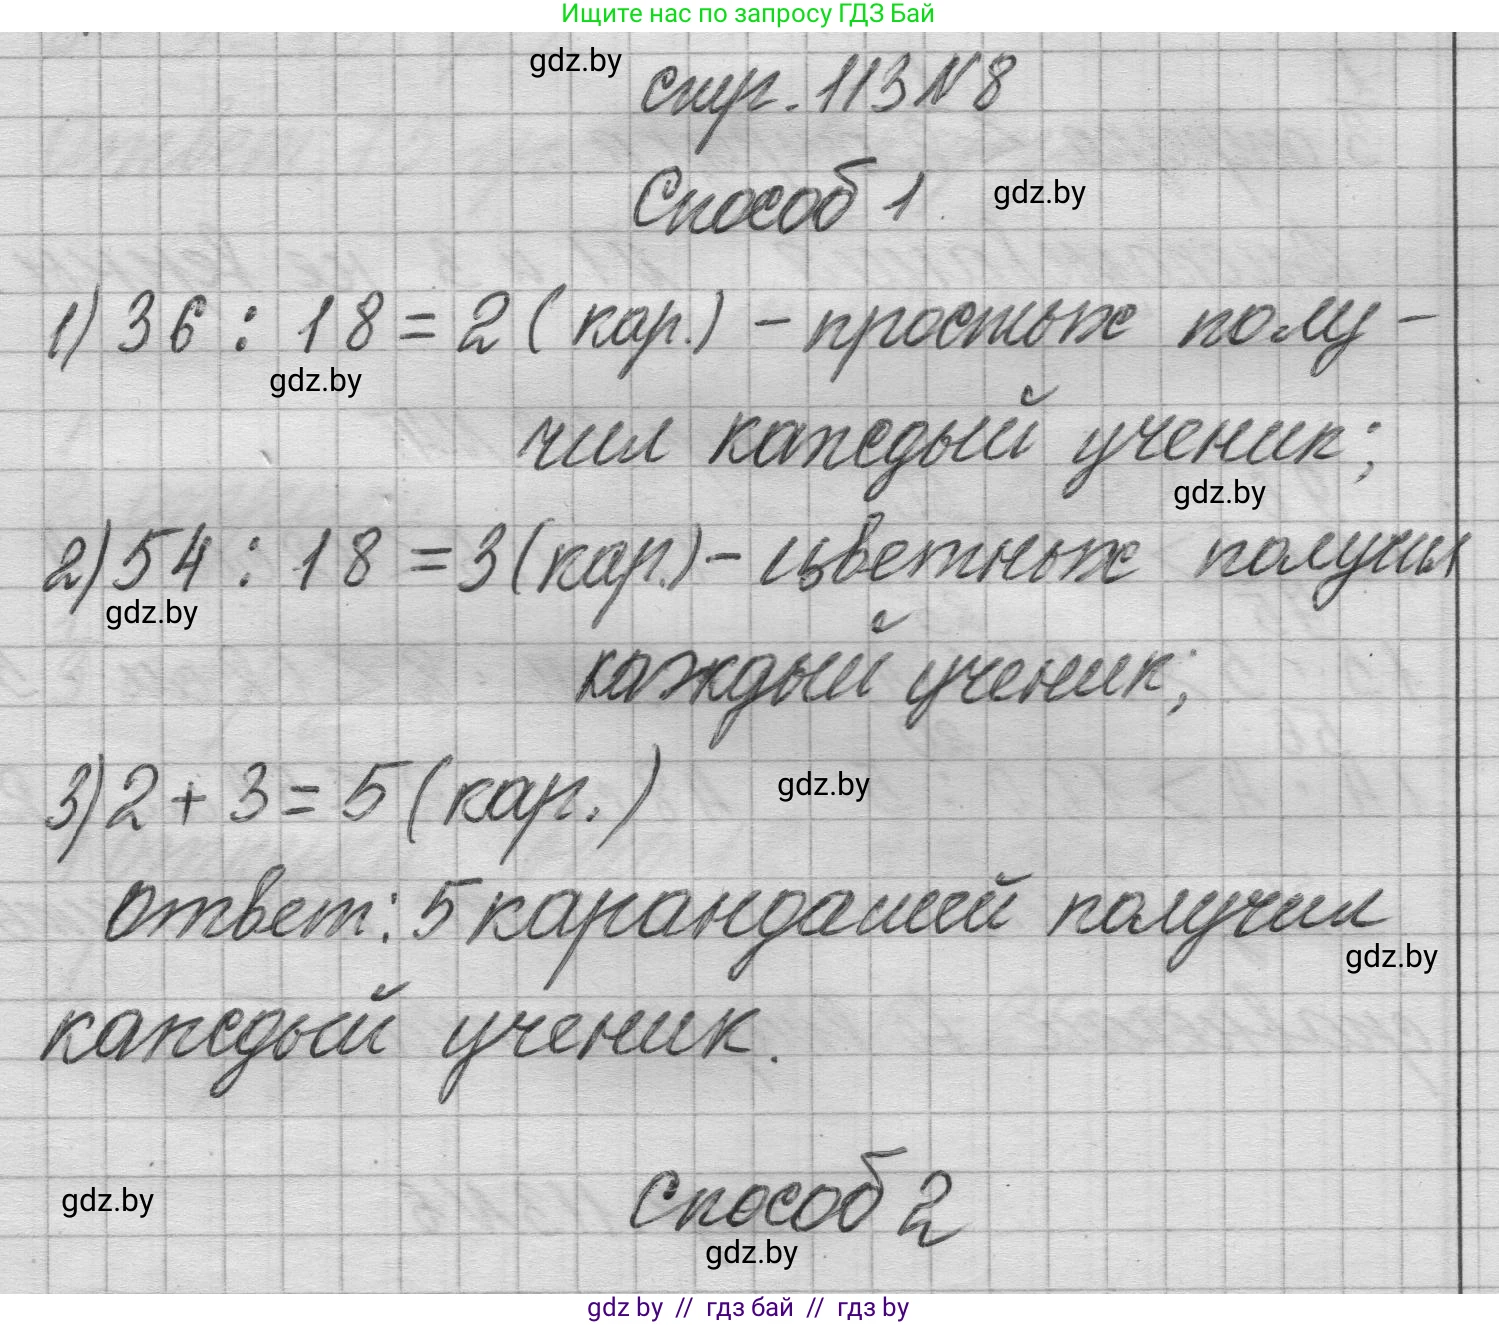 Ищите нас по запросу ГДЗ Бай
gdz.by
стр. 113 №8
Способ 1
gdz.by
1) 36 : 18 = 2 (кар.) - простых полу-
gdz.by
чил каждый ученик;
gdz.by
2) 54 : 18 = 3 (кар.) - цветных получил
gdz.by
каждый ученик;
3) 2 + 3 = 5 (кар.)
gdz.by
Ответ: 5 карандашей получил
gdz.by
каждый ученик.
Способ 2
gdz.by
gdz.by
gdz by // гдз бай // гдз by